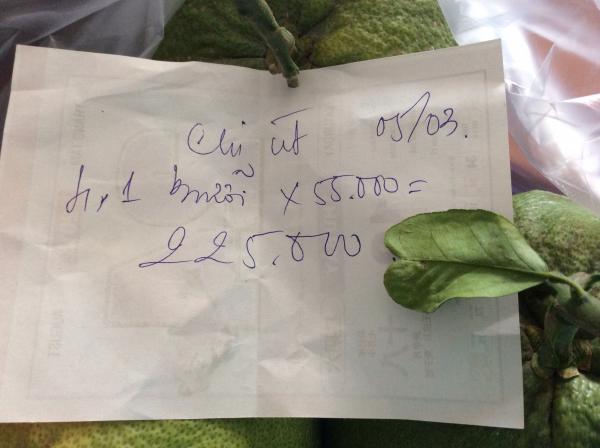 Chị út 05/03.
4,1 bưởi x 55.000 =
225.000